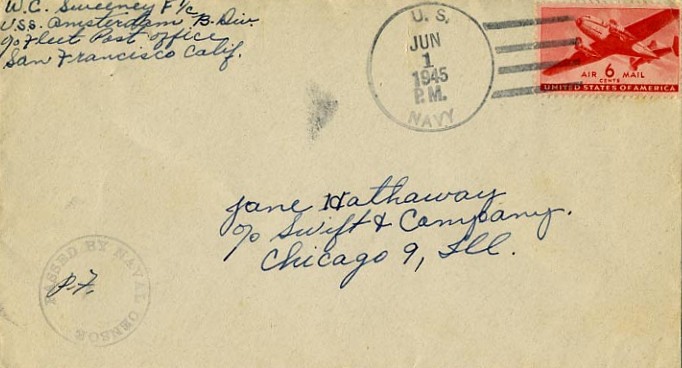 W.C. Sweeney F 1/c
U.S.S. Amsterdam B. Div.
c/o Fleet Post Office
San Francisco Calif.
U. S.
JUN
1
1945
P.M.
NAVY
AIR 6 MAIL
CENTS
UNITED STATES OF AMERICA
Jane Hathaway
c/o Swift & Company.
Chicago 9, Ill.
PASSED BY NAVAL CENSOR
P.F.